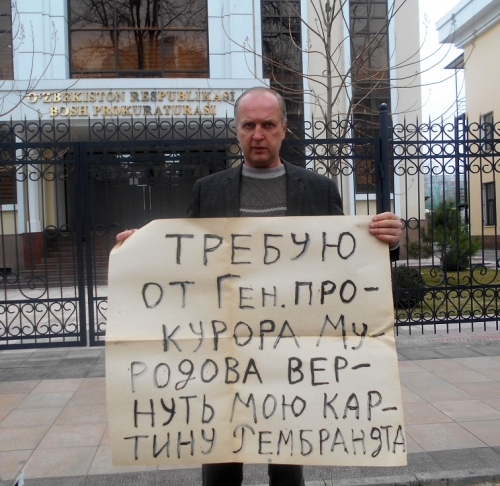 O'ZBEKISTON RESPUBLIKASI
BOSH PROKURATURASI
ТРЕБУЮ
ОТ ГЕН. ПРО-
КУРОРА МУ-
РОДОВА ВЕР-
НУТЬ МОЮ КАР-
ТИНУ РЕМБРАНДТА